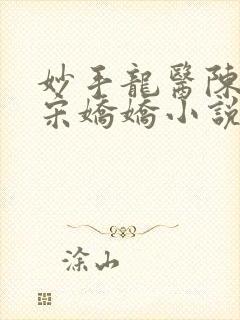 妙手龍醫陳
宋嬌嬌小説
涂山